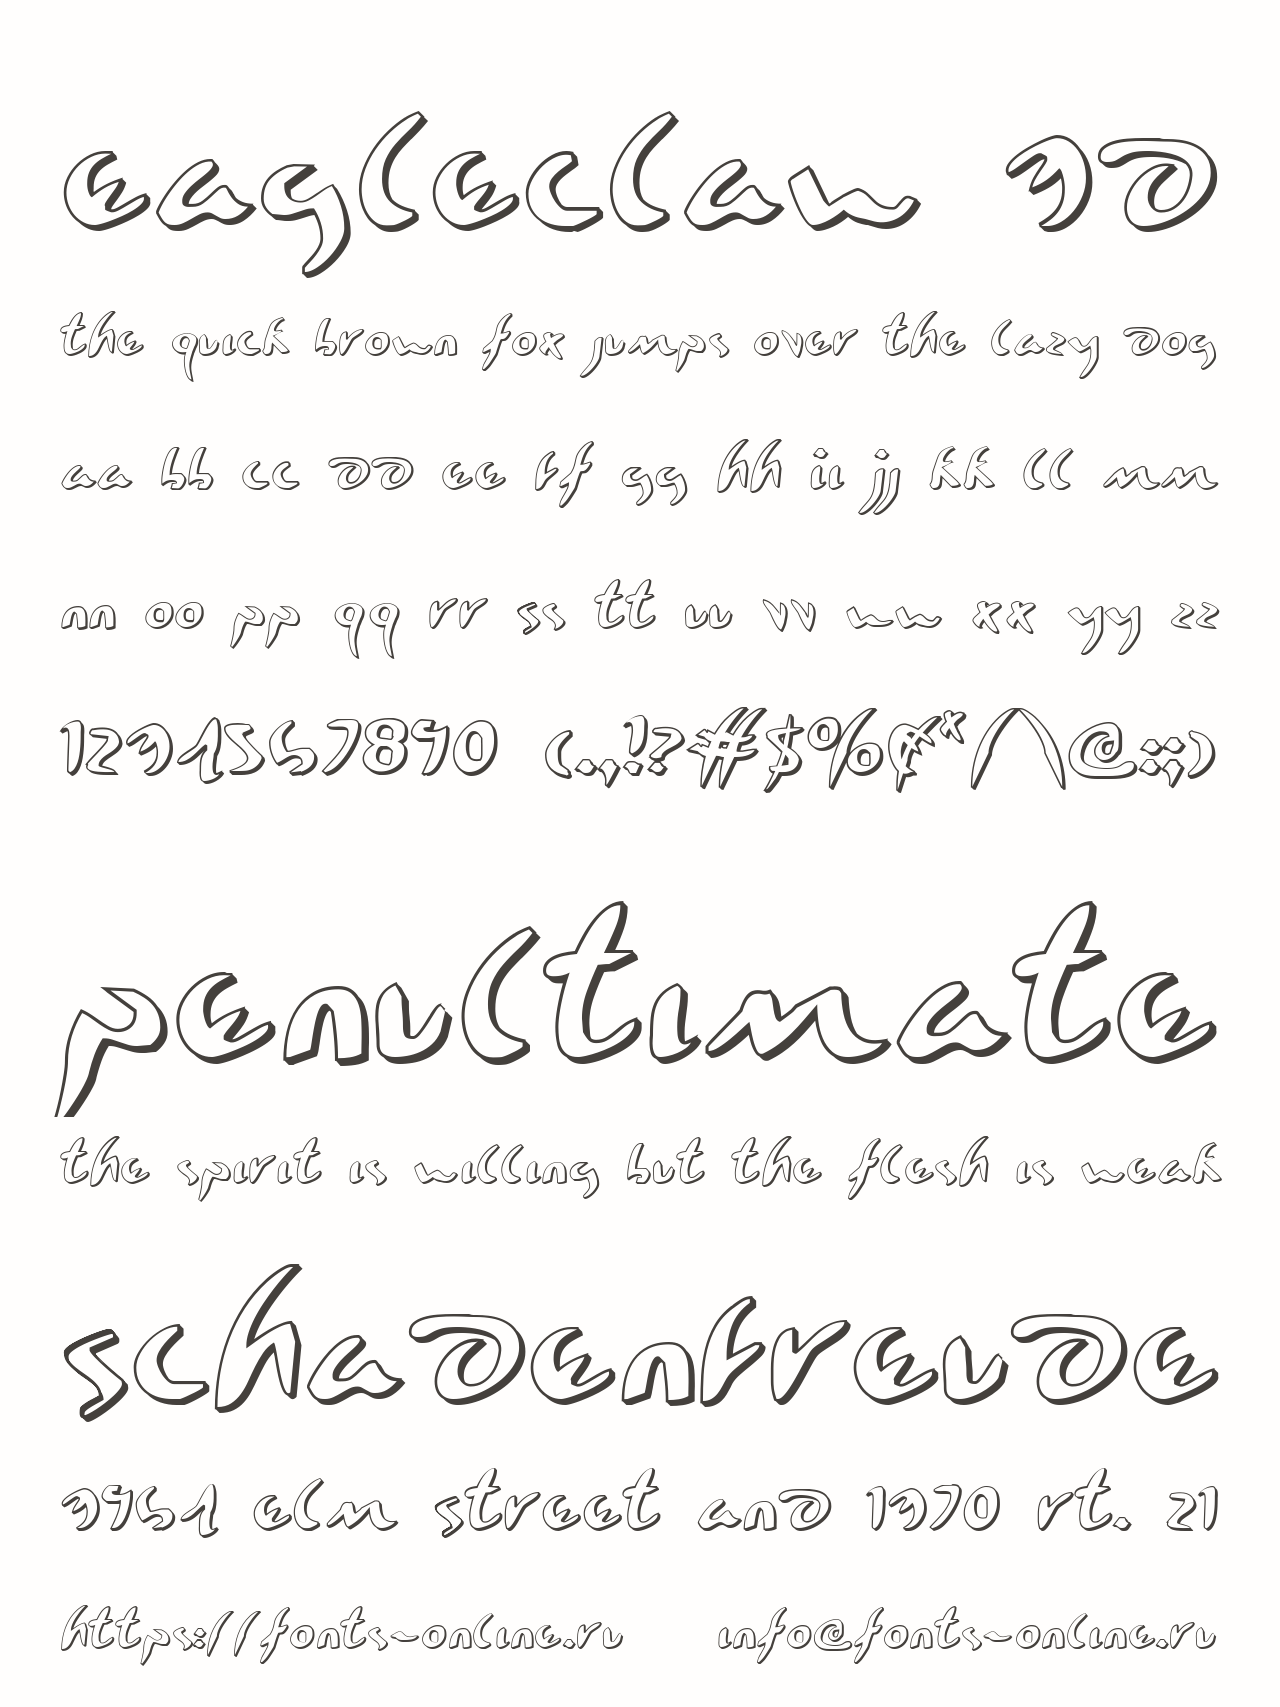 eagleclaw 3d
the quick brown fox jumps over the lazy dog
aa bb cc dd ee ff gg hh ii jj kk ll mm
nn oo pp qq rr ss tt uu vv ww xx yy zz
1234567890 (.,!?#$%&*/\@:;)
penultimate
the spirit is willing but the flesh is weak
schadenfreude
3964 elm street and 1370 rt. 21
https://fonts-online.ru info@fonts-online.ru